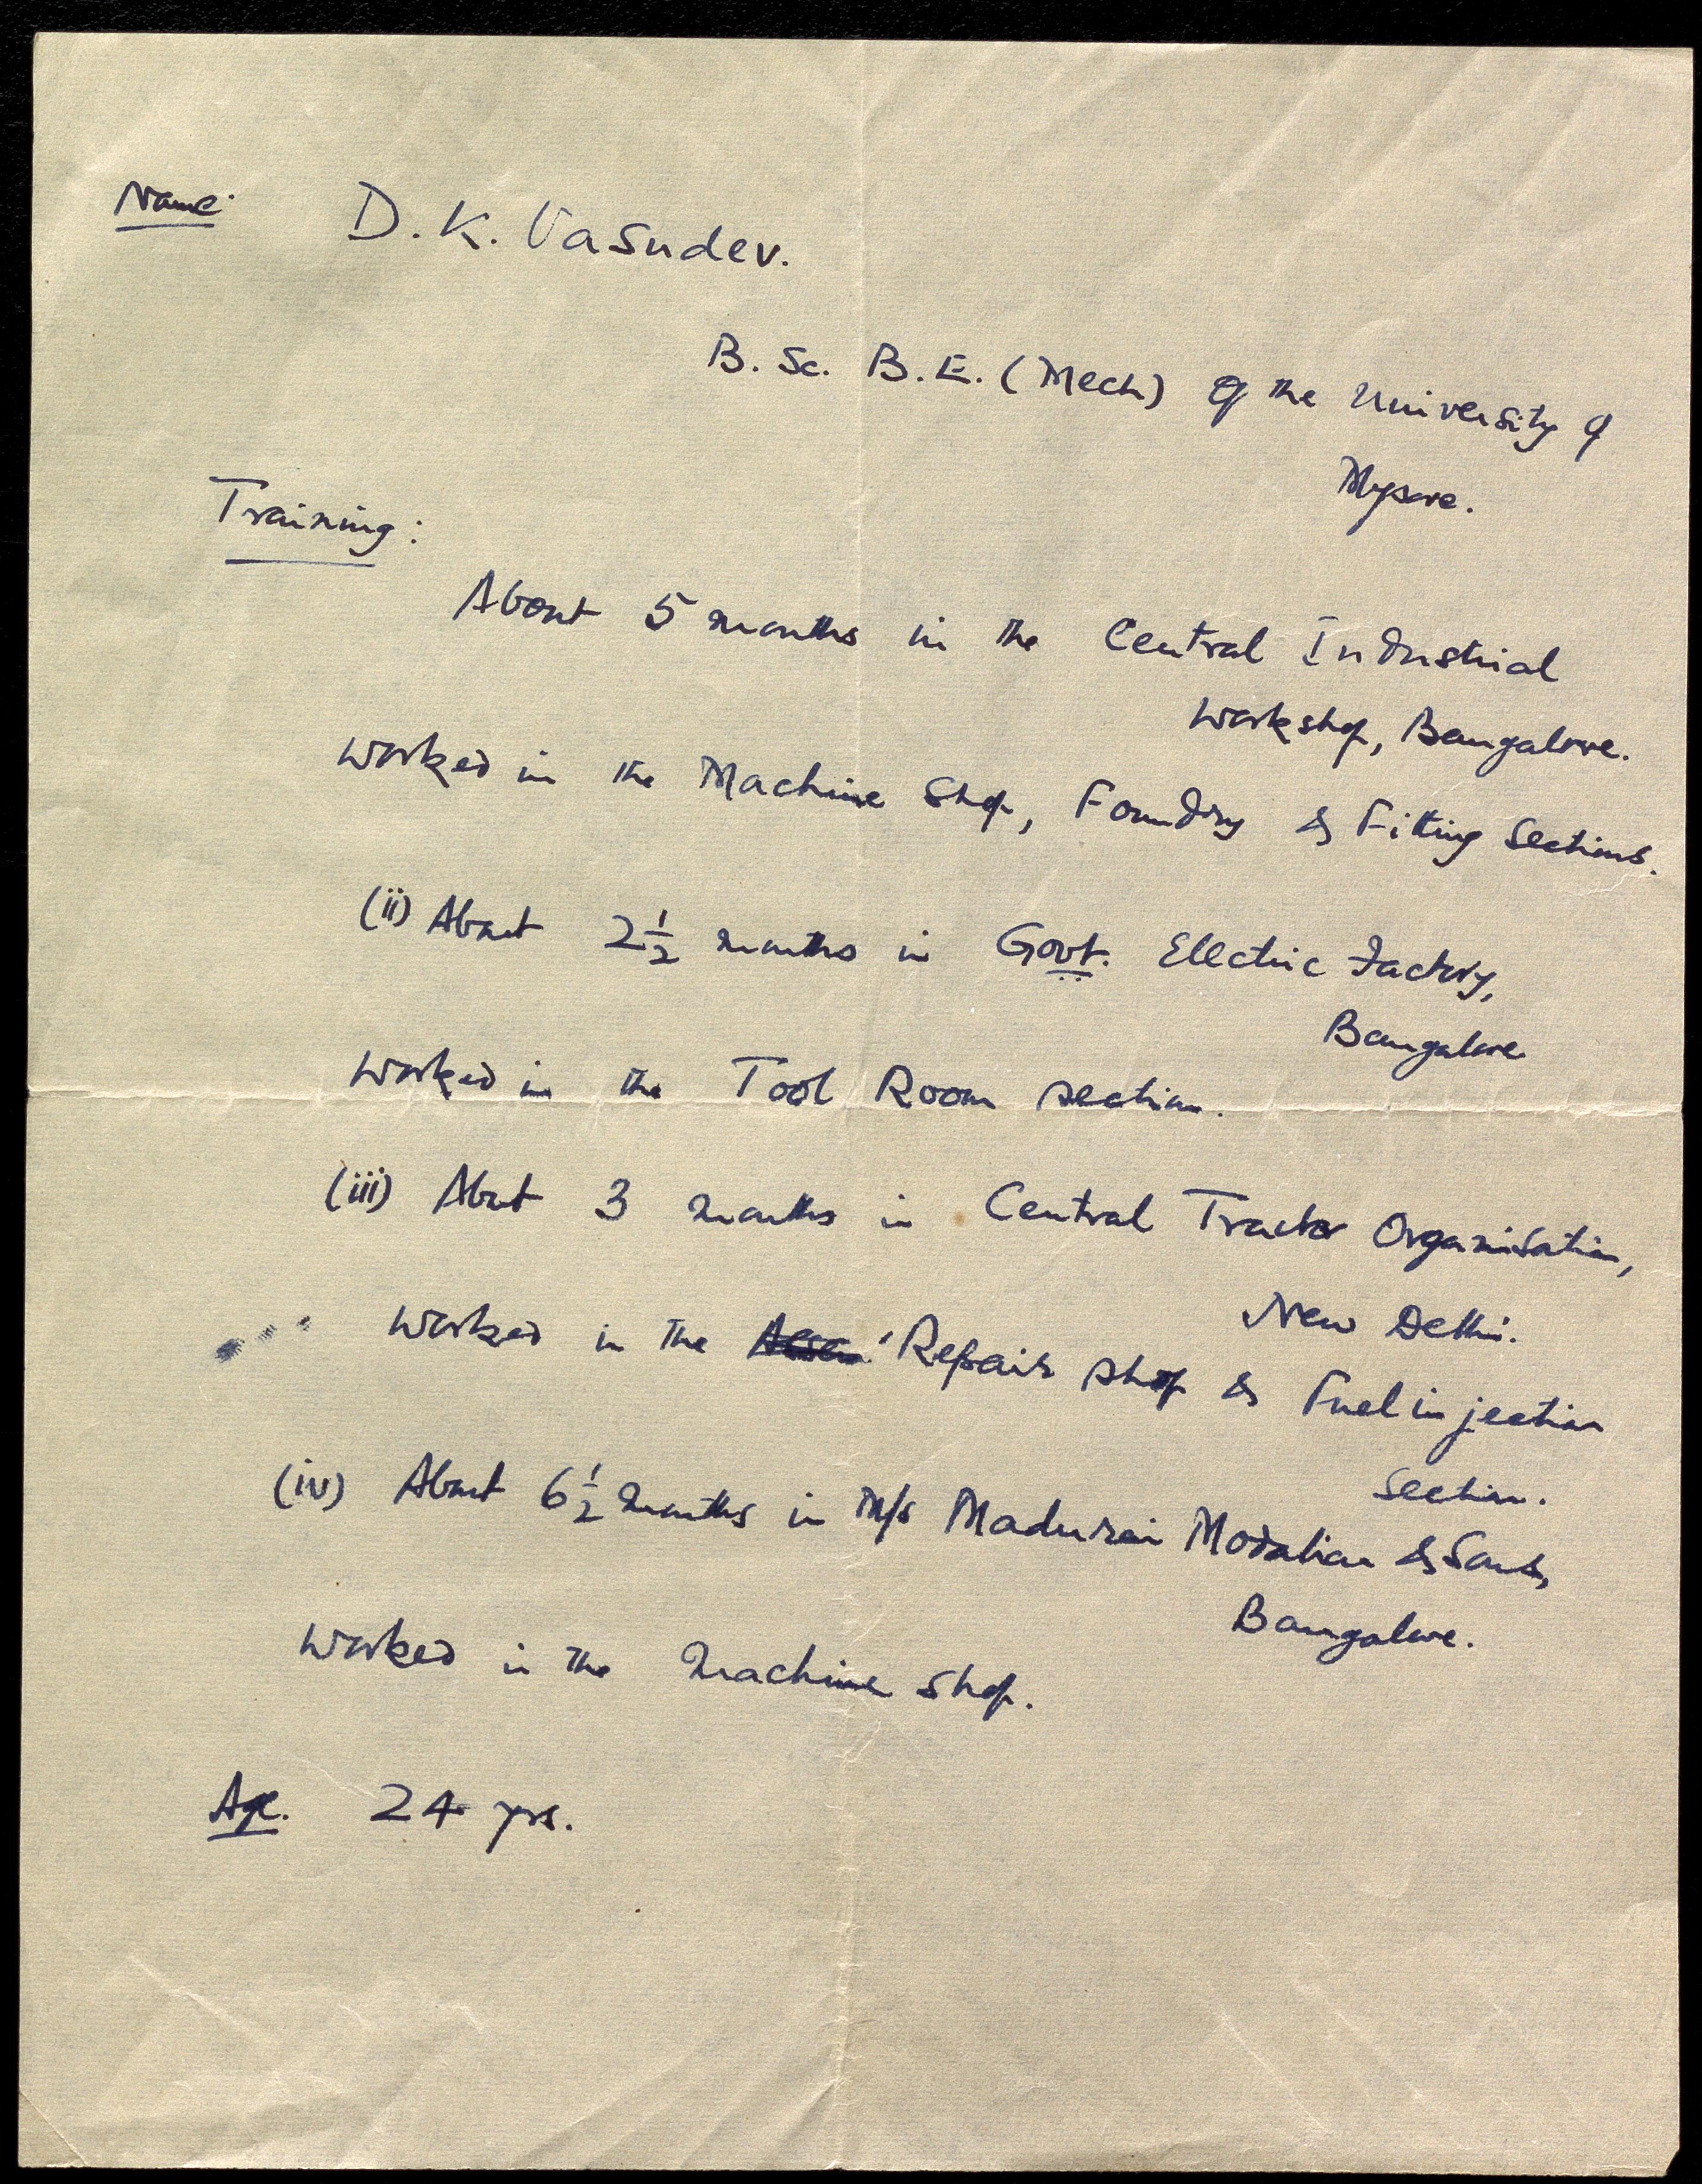 Name: D. K. Vasudev.
B. Sc. B.E. (Mech) of the University of
Mysore.
Training:
About 5 months in the Central Industrial
Workshop, Bangalore.
Worked in the Machine Shop, Foundry & Fitting Sections.
(ii) About 2½ months in Govt. Electric Factory,
Bangalore
Worked in the Tool Room section.
(iii) About 3 months in Central Tractor Organisation,
New Delhi.
Worked in the Repair shop & Fuel injection
Section.
(iv) About 6½ months in M/s Madurai Modaliar & Sons,
Bangalore.
Worked in the Machine Shop.
Age. 24 yrs.